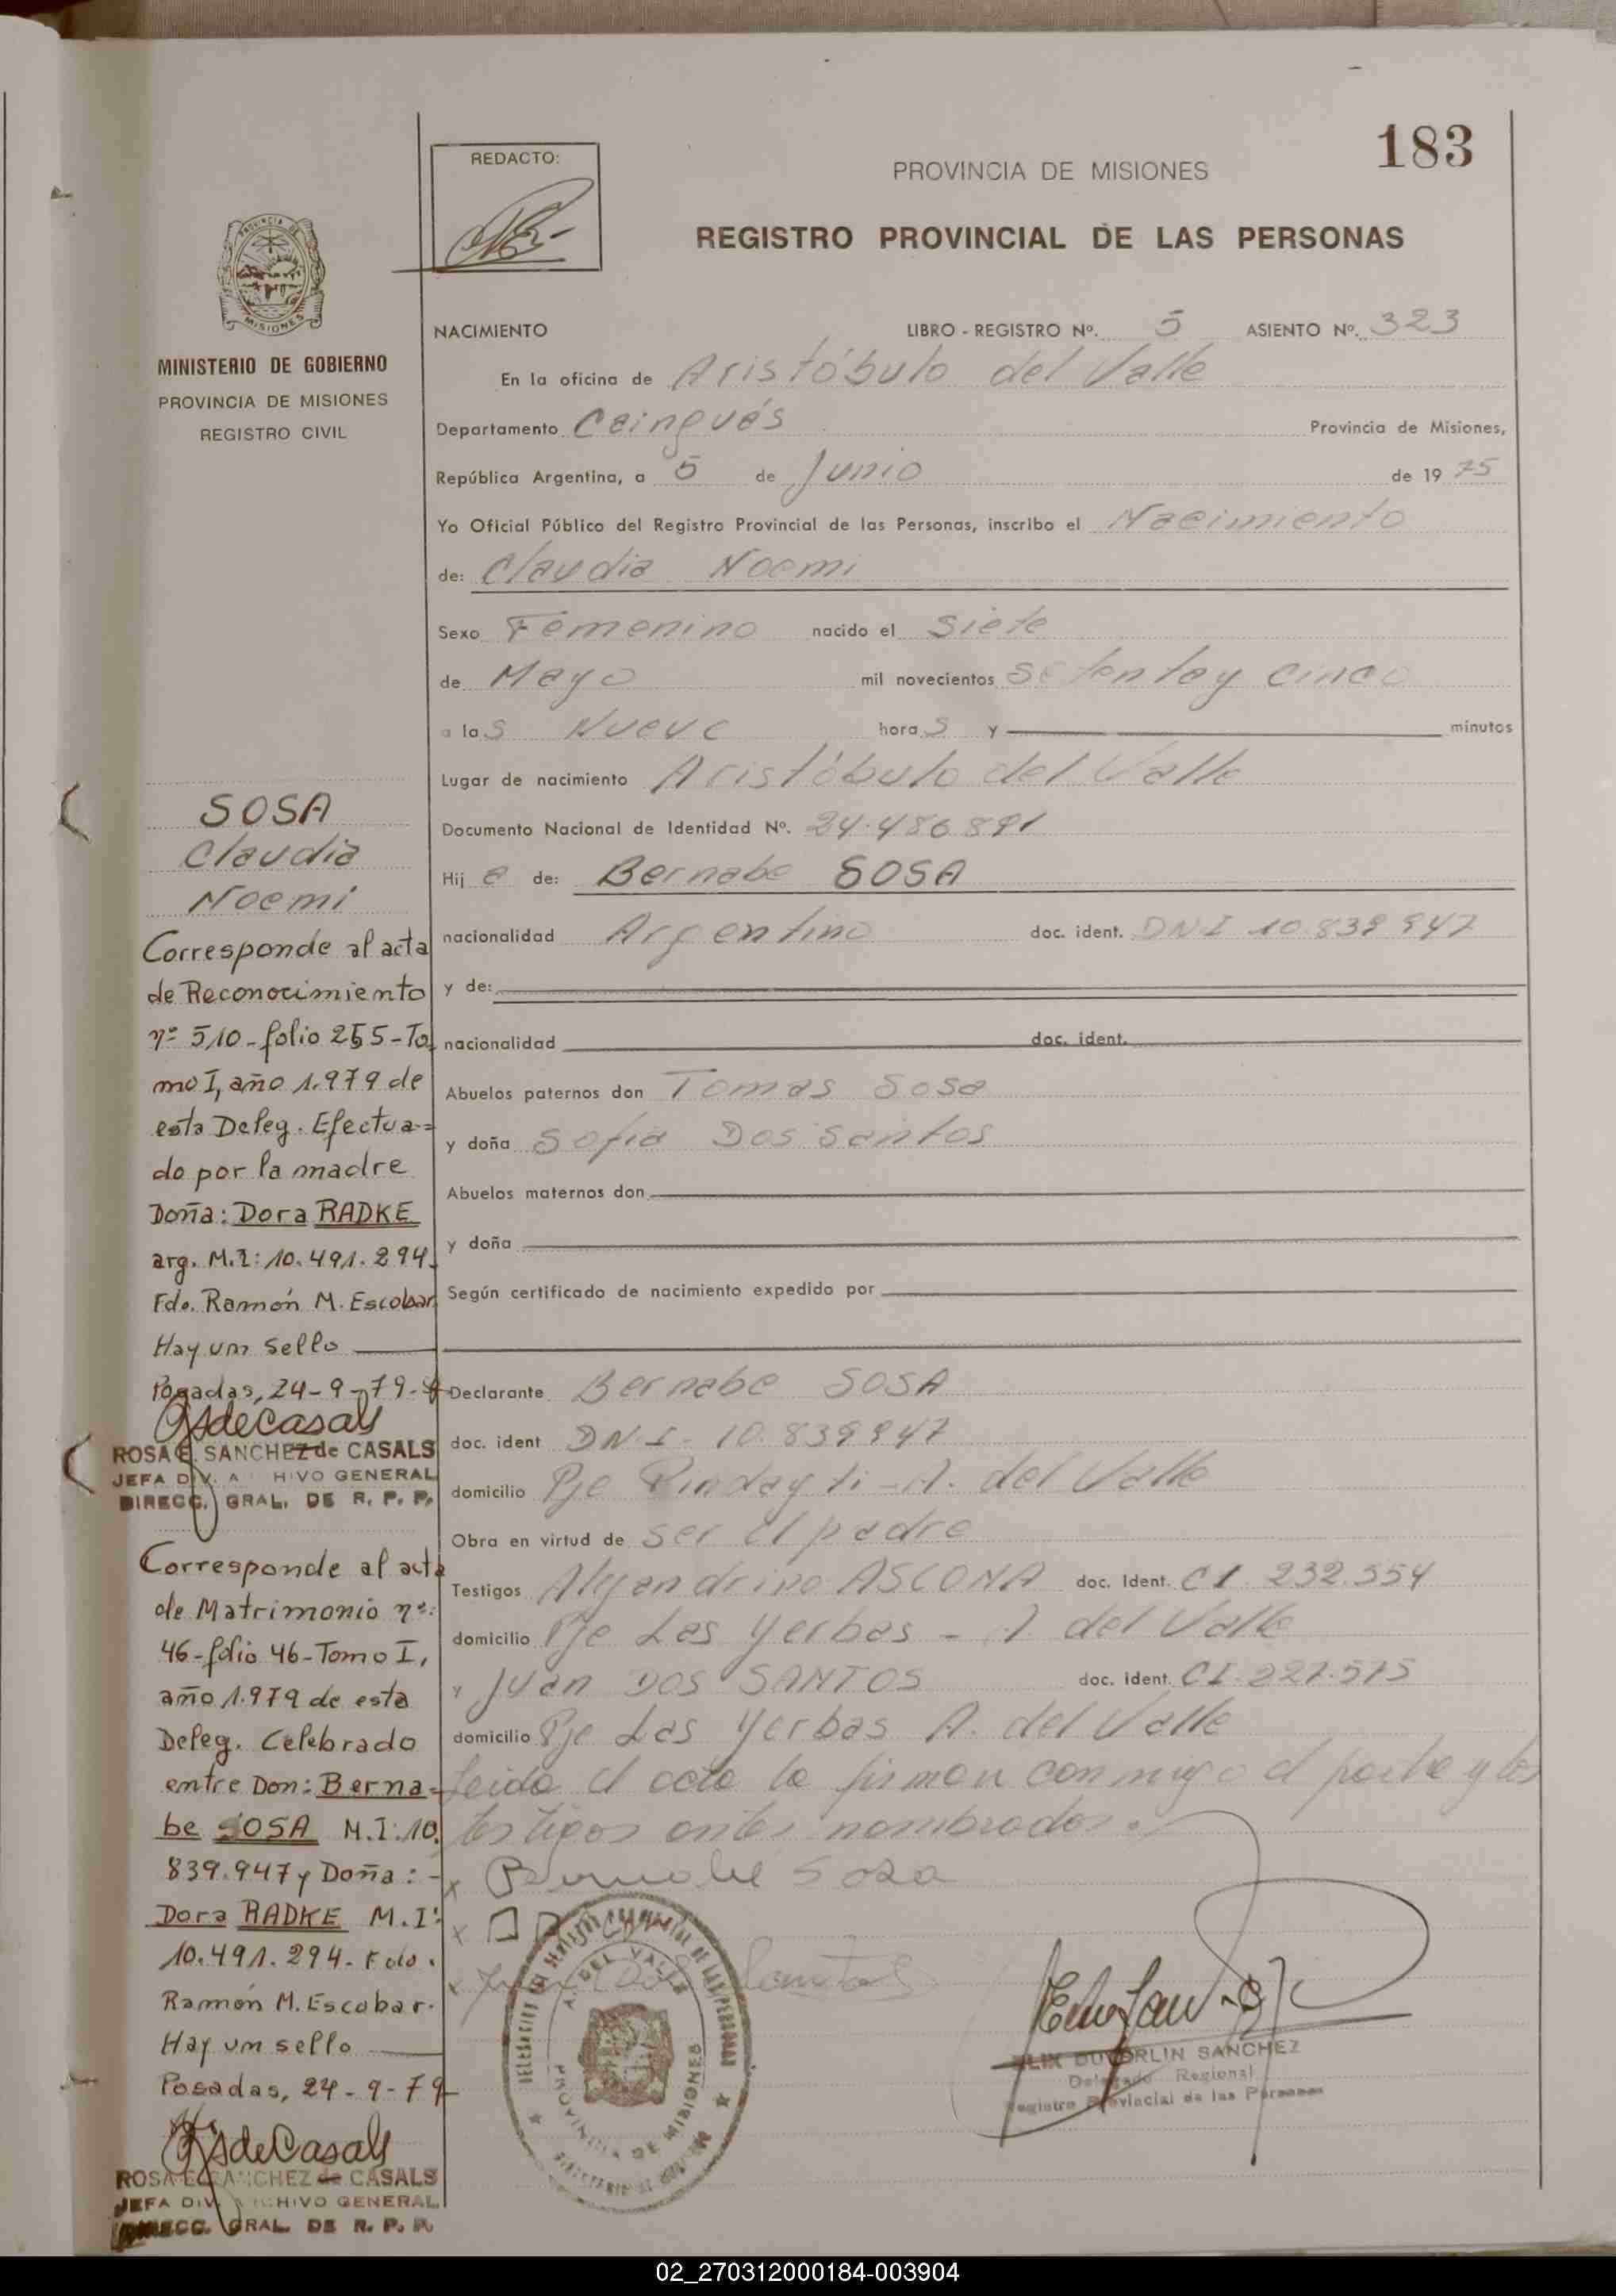 183
REDACTO:
PROVINCIA DE MISIONES
REGISTRO PROVINCIAL DE LAS PERSONAS
PROVINCIA DE
MISIONES
MINISTERIO DE GOBIERNO
PROVINCIA DE MISIONES
REGISTRO CIVIL
NACIMIENTO LIBRO - REGISTRO Nº. 5 ASIENTO Nº. 323
En la oficina de Aristóbulo del Valle
Departamento Cainguás Provincia de Misiones,
República Argentina, a 5 de Junio de 19 75
Yo Oficial Público del Registro Provincial de las Personas, inscribo el Nacimiento
de: Claudia Noemi
Sexo Femenino nacido el siete
de Mayo mil novecientos setenta y cinco
a las Nueve horas y minutos
Lugar de nacimiento Aristóbulo del Valle
Documento Nacional de Identidad Nº. 24.486.891
Hij a de: Bernabe SOSA
nacionalidad Argentino doc. ident. DNI 10.839.947
y de:
nacionalidad doc. ident.
Abuelos paternos don Tomas Sosa
y doña Sofia Dos Santos
Abuelos maternos don
y doña
Según certificado de nacimiento expedido por
Declarante Bernabe SOSA
doc. ident DN.I. 10.839.947
domicilio Pje Pindayti - A. del Valle
Obra en virtud de ser el padre
Testigos Alejandrino ASCONA doc. Ident. CI. 232.554
domicilio Pje Las Yerbas - A del Valle
y Juan DOS SANTOS doc. ident. CI. 227.515
domicilio Pje Las Yerbas A. del Valle
leida el acta la firman conmigo el padre y los
testigos antes nombrados.
x Bernabe Sosa
x
x Juan Dos Santos
A. DEL VALLE
PROVINCIA DE MISIONES
DUVERLIN SANCHEZ
Delegado Regional
Registro Provincial de las Personas
SOSA
Claudia
Noemi
Corresponde al acta
de Reconocimiento
nº 510 - folio 255 - To
mo I, año 1.979 de
esta Deleg. Efectua=
do por la madre
Doña: Dora RADKE
arg. M.I: 10.491.294.
Fdo. Ramón M. Escobar
Hay un sello
Posadas, 24-9-79.
RSdeCasals
ROSA E. SANCHEZ de CASALS
JEFA DIV. ARCHIVO GENERAL
DIRECC. GRAL. DE R. P. P.
Corresponde al acta
de Matrimonio nº:
46 - folio 46 - Tomo I,
año 1.979 de esta
Deleg. Celebrado
entre Don: Berna=
be SOSA M.I: 10.
839.947 y Doña: -
Dora RADKE M.I:
10.491.294. Fdo.
Ramón M. Escobar.
Hay un sello
Posadas, 24-9-79
RSdeCasals
ROSA E. SANCHEZ de CASALS
JEFA DIV. ARCHIVO GENERAL
DIRECC. GRAL. DE R. P. P.
02_270312000184-003904